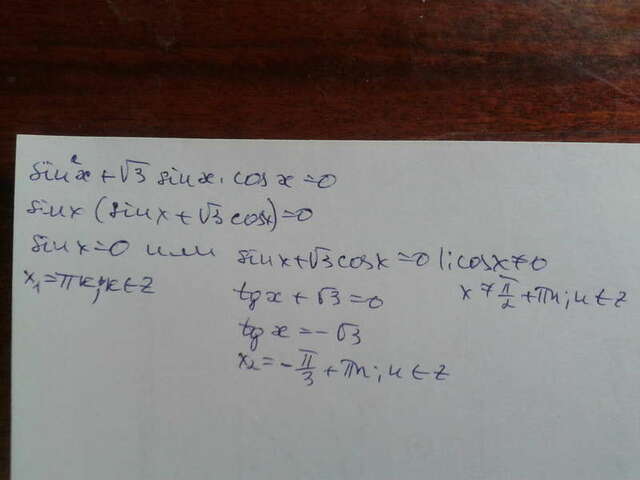 sin²x + √3 sinx · cosx = 0
sinx (sinx + √3 cosx) = 0
sinx = 0 или sinx + √3 cosx = 0 |: cosx ≠ 0
x₁ = πk; k ∈ Z tgx + √3 = 0 x ≠ π/2 + πn; n ∈ Z
tgx = -√3
x₂ = -π/3 + πn; n ∈ Z